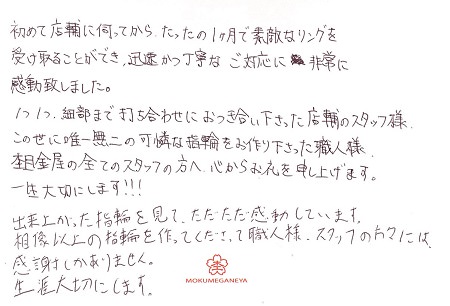 初めて店舗に伺ってから、たったの1ヶ月で素敵なリングを
受け取ることができ、迅速かつ丁寧なご対応に非常に
感動致しました。
1つ1つ、細部まで打ち合わせにおつき合い下さった店舗のスタッフ様、
このせに唯一無二の可憐な指輪をお作り下さった職人様、
杢目金屋の全てのスタッフの方へ、心からお礼を申し上げます。
一生大切にします!!!
出来上がった指輪を見て、ただただ感動しています。
想像以上の指輪を作ってくださって職人様、スタッフの方々には
感謝しかありません。
生涯大切にします。
MOKUMEGANEYA